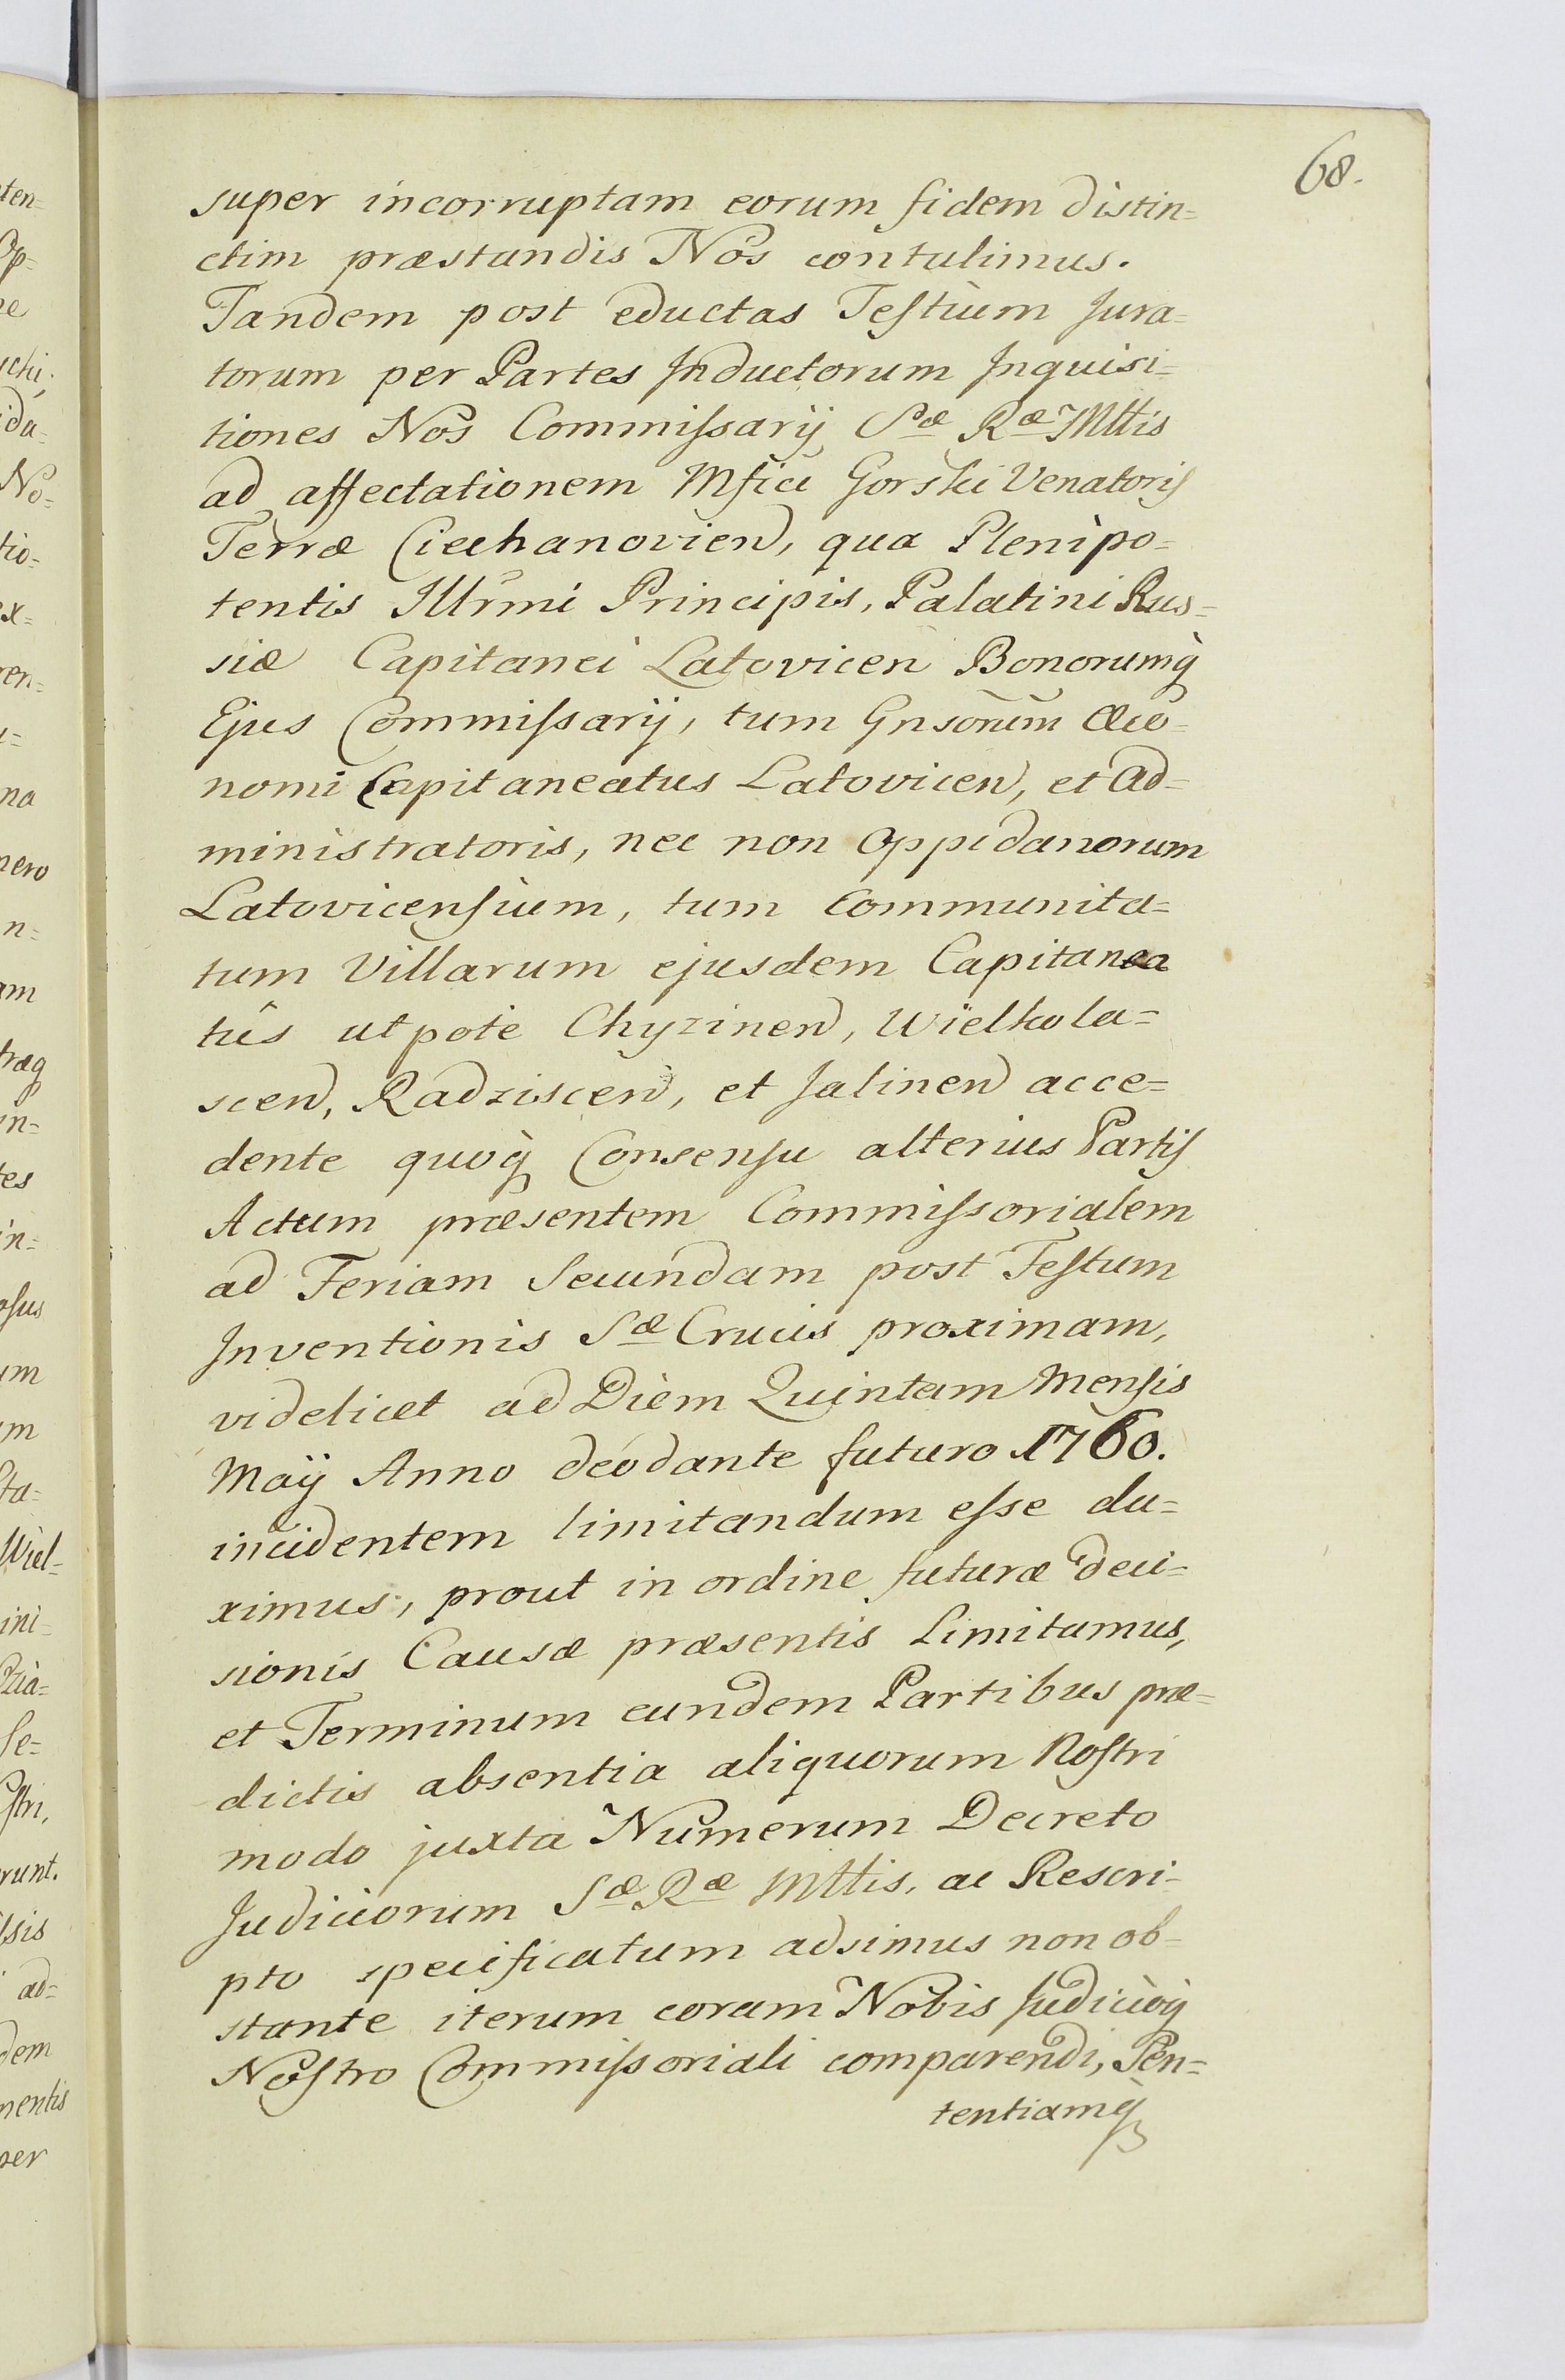 68.
super incorruptam eorum fidem distin=
ctim præstandis Nos contulimus.
Tandem post eductas Teſtium Jura=
torum per Partes Inductorum Inquisi=
tiones Nos Commiſsarij Sæ Ræ Mttis
ad affectationem Mfici Gorski Venatoriſ
Terræ Ciechanovien, qua Plenipo=
tentis Illrmi Principis, Palatini Rus=
siæ Capitanei Latovicen Bonorumq
Ejus Commiſsarij, tum Gnsorum Œco=
nomi Capitaneatus Latovicen, et Ad=
ministratoris, nec non Oppidanorum
Latovicenſium, tum Communita=
tum Villarum ejusdem Capitanea
tûs utpote Chyzinen, Wielkola=
scen, Radziscen, et Jalinen acce=
dente quoq Consenſu alterius Partiſ
Actum præsentem Commiſsorialem
ad Feriam Secundam post Feſtum
Inventionis Sæ Crucis proximam,
videlicet ad Diem Quintam Menſis
Maÿ Anno deodante futuro 1760.
incidentem limitandum eſse du=
ximus, prout in ordine futuræ deci=
sionis Causæ præsentis Limitamus,
et Terminum eundem Partibus præ=
dictis absentia aliquorum Noſtri
modo juxta Numerum Decreto
Judiciorum Sæ Ræ Mttis, ac Rescri=
pto specificatum adsimus non ob=
stante iterum coram Nobis Judicioq
Noſtro Commiſsoriali comparendi, Pen=
tentiamq
ten=
Op=
schi.
ida=
No=
tio=
ex=
ren=
na
nero
n=
am
in=
tes
in=
um
um
Wiel=
ini=
Se=
ſtri,
runt.
ad=
dem
mentis
per